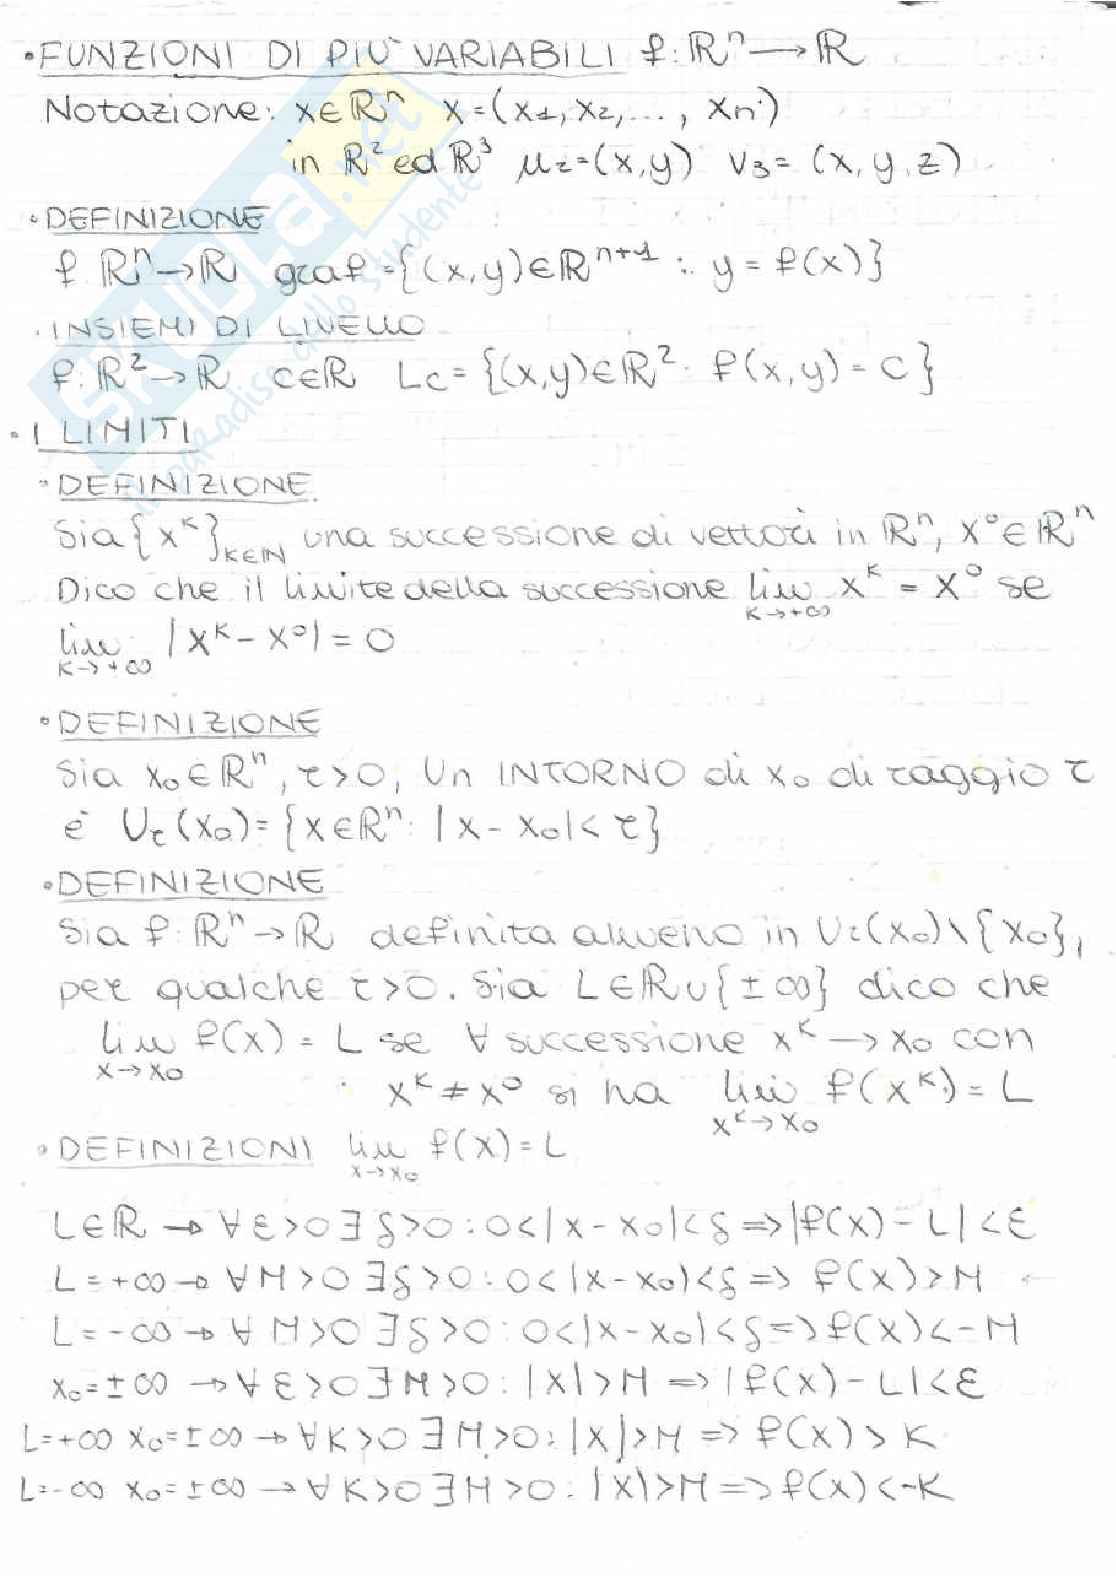 • FUNZIONI DI PIÙ VARIABILI f: ℝⁿ → ℝ
Notazione: x∈ℝⁿ x=(x₁, x₂, ..., xₙ)
in ℝ² ed ℝ³ μ₂=(x,y) v₃=(x,y,z)
• DEFINIZIONE
f ℝⁿ→ℝ graf={(x,y)∈ℝⁿ⁺¹: y=f(x)}
• INSIEMI DI LIVELLO
f: ℝ²→ℝ c∈ℝ Lc={(x,y)∈ℝ²: f(x,y)=c}
• I LIMITI
• DEFINIZIONE
Sia {xᵏ}k∈ℕ una successione di vettori in ℝⁿ, x⁰∈ℝⁿ
Dico che il limite della successione lim xᵏ = x⁰ se
k→+∞
lim |xᵏ-x⁰|=0
k→+∞
• DEFINIZIONE
Sia x₀∈ℝⁿ, r>0, Un INTORNO di x₀ di raggio r
è Ur(x₀)={x∈ℝⁿ: |x-x₀|<r}
• DEFINIZIONE
Sia f: ℝⁿ→ℝ definita almeno in Ur(x₀)\{x₀},
per qualche r>0. Sia L∈ℝ∪{±∞} dico che
lim f(x)=L se ∀ successione xᵏ→x₀ con
x→x₀
xᵏ≠x⁰ si ha lim f(xᵏ)=L
xᵏ→x₀
• DEFINIZIONI lim f(x)=L
x→x₀
L∈ℝ → ∀ε>0 ∃δ>0: 0<|x-x₀|<δ => |f(x)-L|<ε
L=+∞ → ∀M>0 ∃δ>0: 0<|x-x₀|<δ => f(x)>M
L=-∞ → ∀M>0 ∃δ>0: 0<|x-x₀|<δ => f(x)<-M
x₀=±∞ → ∀ε>0 ∃M>0: |x|>M => |f(x)-L|<ε
L=+∞ x₀=±∞ → ∀K>0 ∃M>0: |x|>M => f(x)>K
L=-∞ x₀=±∞ → ∀K>0 ∃M>0: |x|>M => f(x)<-K
SKUOLA.net
il paradiso dello studente